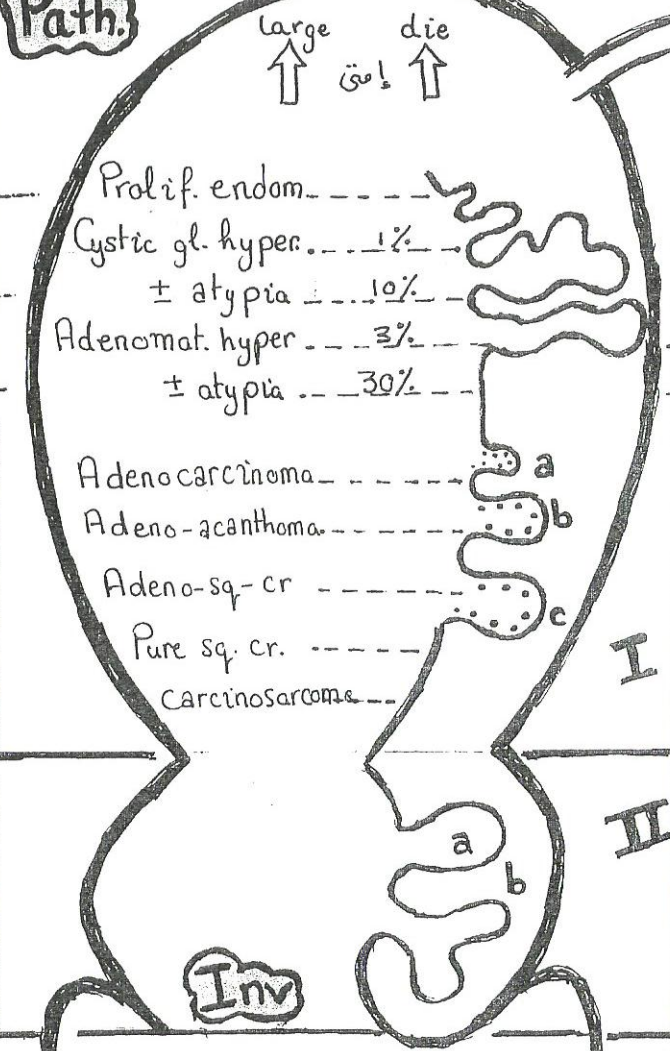 Path.
large die
إمتى
Prolif. endom.
Cystic gl. hyper. 1%
± atypia 10%
Adenomat. hyper 3%
± atypia 30%
Adenocarcinoma a
Adeno-acanthoma b
Adeno-sq-cr c
Pure sq. cr.
I
Carcinosarcoma
II
a
b
Inv